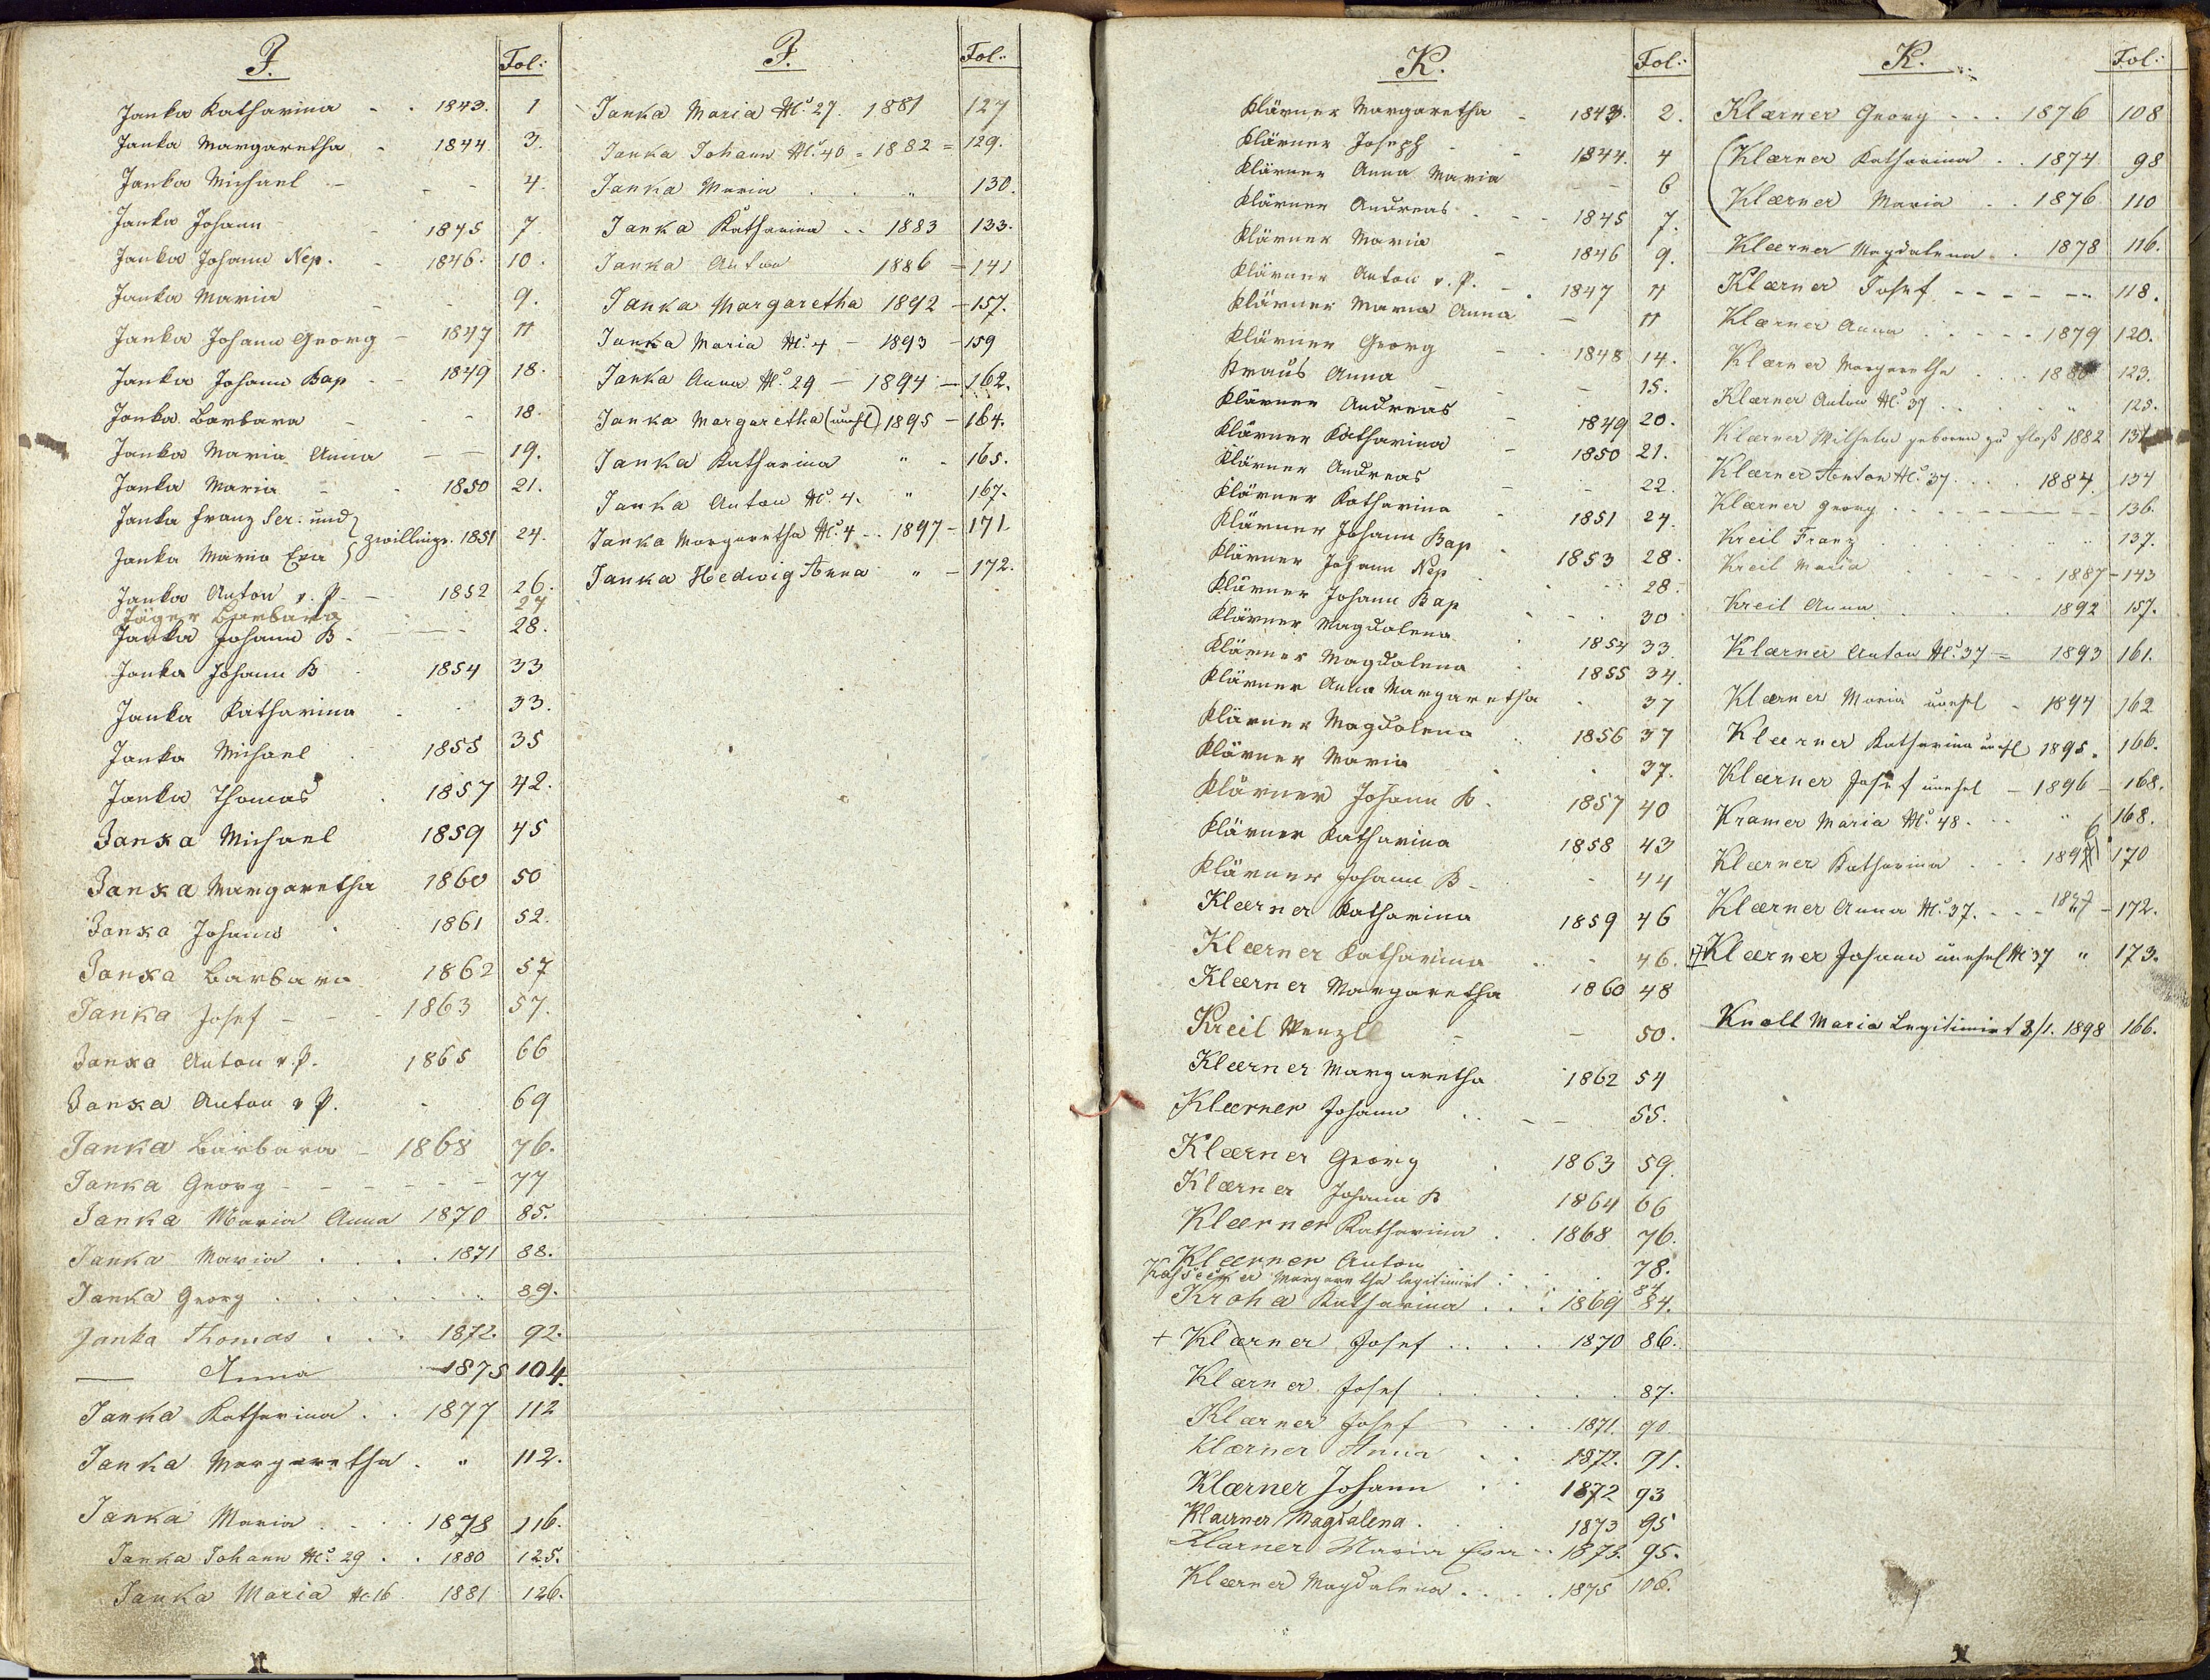 J. Fol:
Janka Katharina - . 1843. 1
Janka Margaretha - 1844 3.
Janka Michael - - - 4.
Janka Johann - 1845 7.
Janka Johann Nep. - 1846. 10.
Janka Maria - - 9.
Janka Johann Georg - 1847 11
Janka Johann Bap - - 1849 18.
Janka Barbara - - 18.
Janka Maria Anna - - 19.
Janka Maria - . 1850 21.
Janka Franz Ser. und
Janka Maria Eva } Zwillinge. 1851 24.
Janka Anton v. P. - 1852 26.
Jäger Barbara 27
Janka Johann B. - - 28.
Janka Johann B . 1854 33
Janka Katharina . . 33.
Janka Michael . 1855 35
Janka Thomas . 1857 42.
Janka Michael 1859 45
Janka Margaretha 1860 50
Janka Johann . 1861 52.
Janka Barbara 1862 57
Janka Josef - - - 1863 57.
Janka Anton v. P. 1865 66
Janka Anton v P. - 69
Janka Barbara - 1868 76.
Janka Georg - - - - - - 77
Janka Maria Anna 1870 85.
Janka Maria . . . . 1871 88.
Janka Georg . . . . . . „ 89.
Janka Thomas . . . 1872. 92.
— Anna 1875 104.
Janka Katharina . . 1877 112
Janka Margaretha . „ 112.
Janka Maria . - . 1878 116.
Janka Johann No. 29 . . 1880 125.
Janka Maria No 16 1881 126.
J. Fol:
Janka Maria No. 27. 1881 127
Janka Johann No. 40 = 1882 = 129.
Janka Maria . . „ 130.
Janka Katharina .. 1883 133.
Janka Anton 1886 = 141
Janka Margaretha 1892 - 157.
Janka Maria No. 4 - 1893 - 159
Janka Anna No. 29 - 1894 - 162.
Janka Margaretha (unehl) 1895 - 164.
Janka Katharina „ - 165.
Janka Anton No. 4. „ 167.
Janka Margaretha No. 4 -. 1897 - 171.
Janka Hedwig Anna „ - 172.
K. Fol:
Klärner Margaretha - 1843. 2.
Klärner Joseph - - 1844. 4
Klärner Anna Maria - - 6
Klärner Andreas - - 1845 7.
Klärner Maria - 1846 9.
Klärner Anton v. P. - . 1847 11
Klärner Maria Anna - 11
Klärner Georg - . 1848 14.
Kraus Anna - - 15.
Klärner Andreas - 1849 20.
Klärner Katharina - 1850 21.
Klärner Andreas - - 22.
Klärner Katharina - 1851 24.
Klärner Johann Bap . 1853 28.
Klärner Johann Nep . . 28.
Klärner Johann Bap . - . 30
Klärner Magdalena . 1854 33.
Klärner Magdalena . 1855 34.
Klärner Anna Margaretha . 37
Klärner Magdalena . 1856 37
Klärner Maria . . 37.
Klärner Johann B. 1857 40
Klärner Katharina 1858 43
Klärner Johann B. - 44
Klærner Katharina 1859 46
Klærner Katharina . - 46.
Klærner Margaretha 1860 48
Kreil Wenzl - - 50.
Klærner Margaretha 1862 54
Klærner Johann . . - - 55.
Klærner Georg . 1863 59.
Klærner Johann B 1864 66
Klærner Katharina . . 1868 76.
Klærner Anton . . . 78.
Margaretha legitimirt . . . 84
Kroha Katharina . . . 1869 84.
+ Klærner Josef . . . . 1870 86.
Klærner Josef . . . . . 87.
Klærner Josef - . . 1871. 90.
Klærner Anna . . 1872. 91.
Klærner Johann . . 1872 93
Klærner Magdalena . . . 1873 95
Klarner Maria Eva . . 1873. 95.
Klærner Magdalena . . . . 1875 106.
K. Fol:
Klærner Georg . . . 1876 108
(Klærner Katharina . . 1874 98
Klærner Maria . . 1876 110
Klærner Magdalena . . 1878 116.
Klærner Josef - - - - -- 118.
Klærner Anna . . - - - 1879 120.
Klærner Margaretha . . . 1880 123.
Klærner Anton No. 37 . . . . „ 125.
Klærner Wilhelm geboren zu 1882
Klærner Anton No. 37 . . . . 1884 134
Klærner Georg . . . - - - - - 136.
Kreil Franz . . . . . . . 137.
Kreil Maria . . . . . 1887 - 143
Kreil Anna . . . . 1892 157.
Klærner Anton No. 37 = 1893 161.
Klærner Maria unehel - 1894 162
Klærner Katharina unehl 1895. 166.
Klærner Josef unehel - 1896 - 168.
Kramer Maria No. 48. . . „ 168.
Klærner Katharina . . . 1896 170
Klærner Anna No. 37. - - - 1897 - 172.
Klærner Johann unehel No 37 „ 173.
Knoll Maria Legitimirt 3/1. 1898 166.